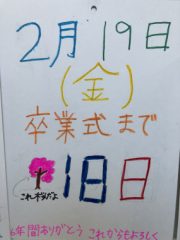 2月19日
(金)
卒業式まで
18日
これ桜だよ
6年間ありがとう これからもよろしく